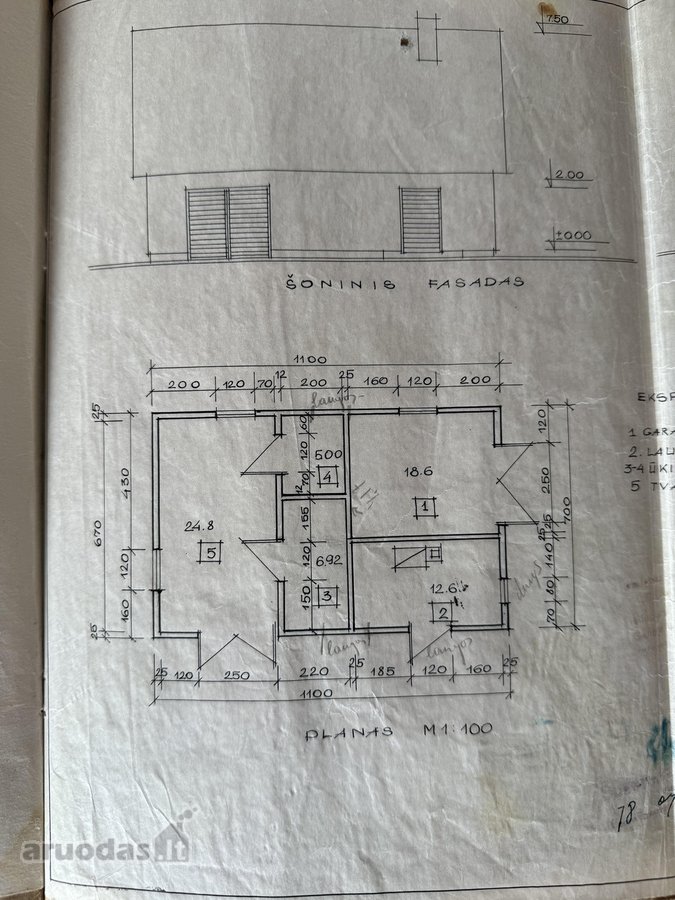 7.50
2.00
±0.00
ŠONINIS FASADAS
1100
200 120 70 12 200 25 160 120 200
langas
25 430 670 120 160 25
60 120 70 12
5.00
4
18.6
1
120 250 25 25 700 140 80 70
24.8
5
155 120 150
6.92
3
12.6
2
langas
langas
langas
25 120 250 220 25 185 120 160 25
1100
PLANAS M 1:100
EKSP
1 GARA
2. LAU
3-4 ŪKI
5 TVA
78
aruodas.lt